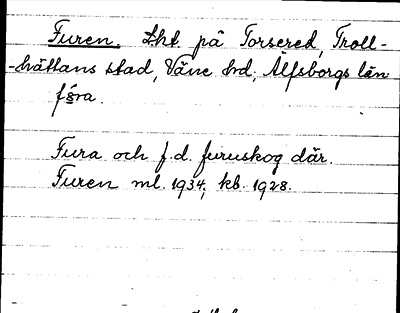 Furen. Lht. på Torsered, Troll-
-hättans stad, Väne hrd, Älfsborgs län
Fura och f.d. furuskog där.
Furen ml. 1934; kb. 1928.